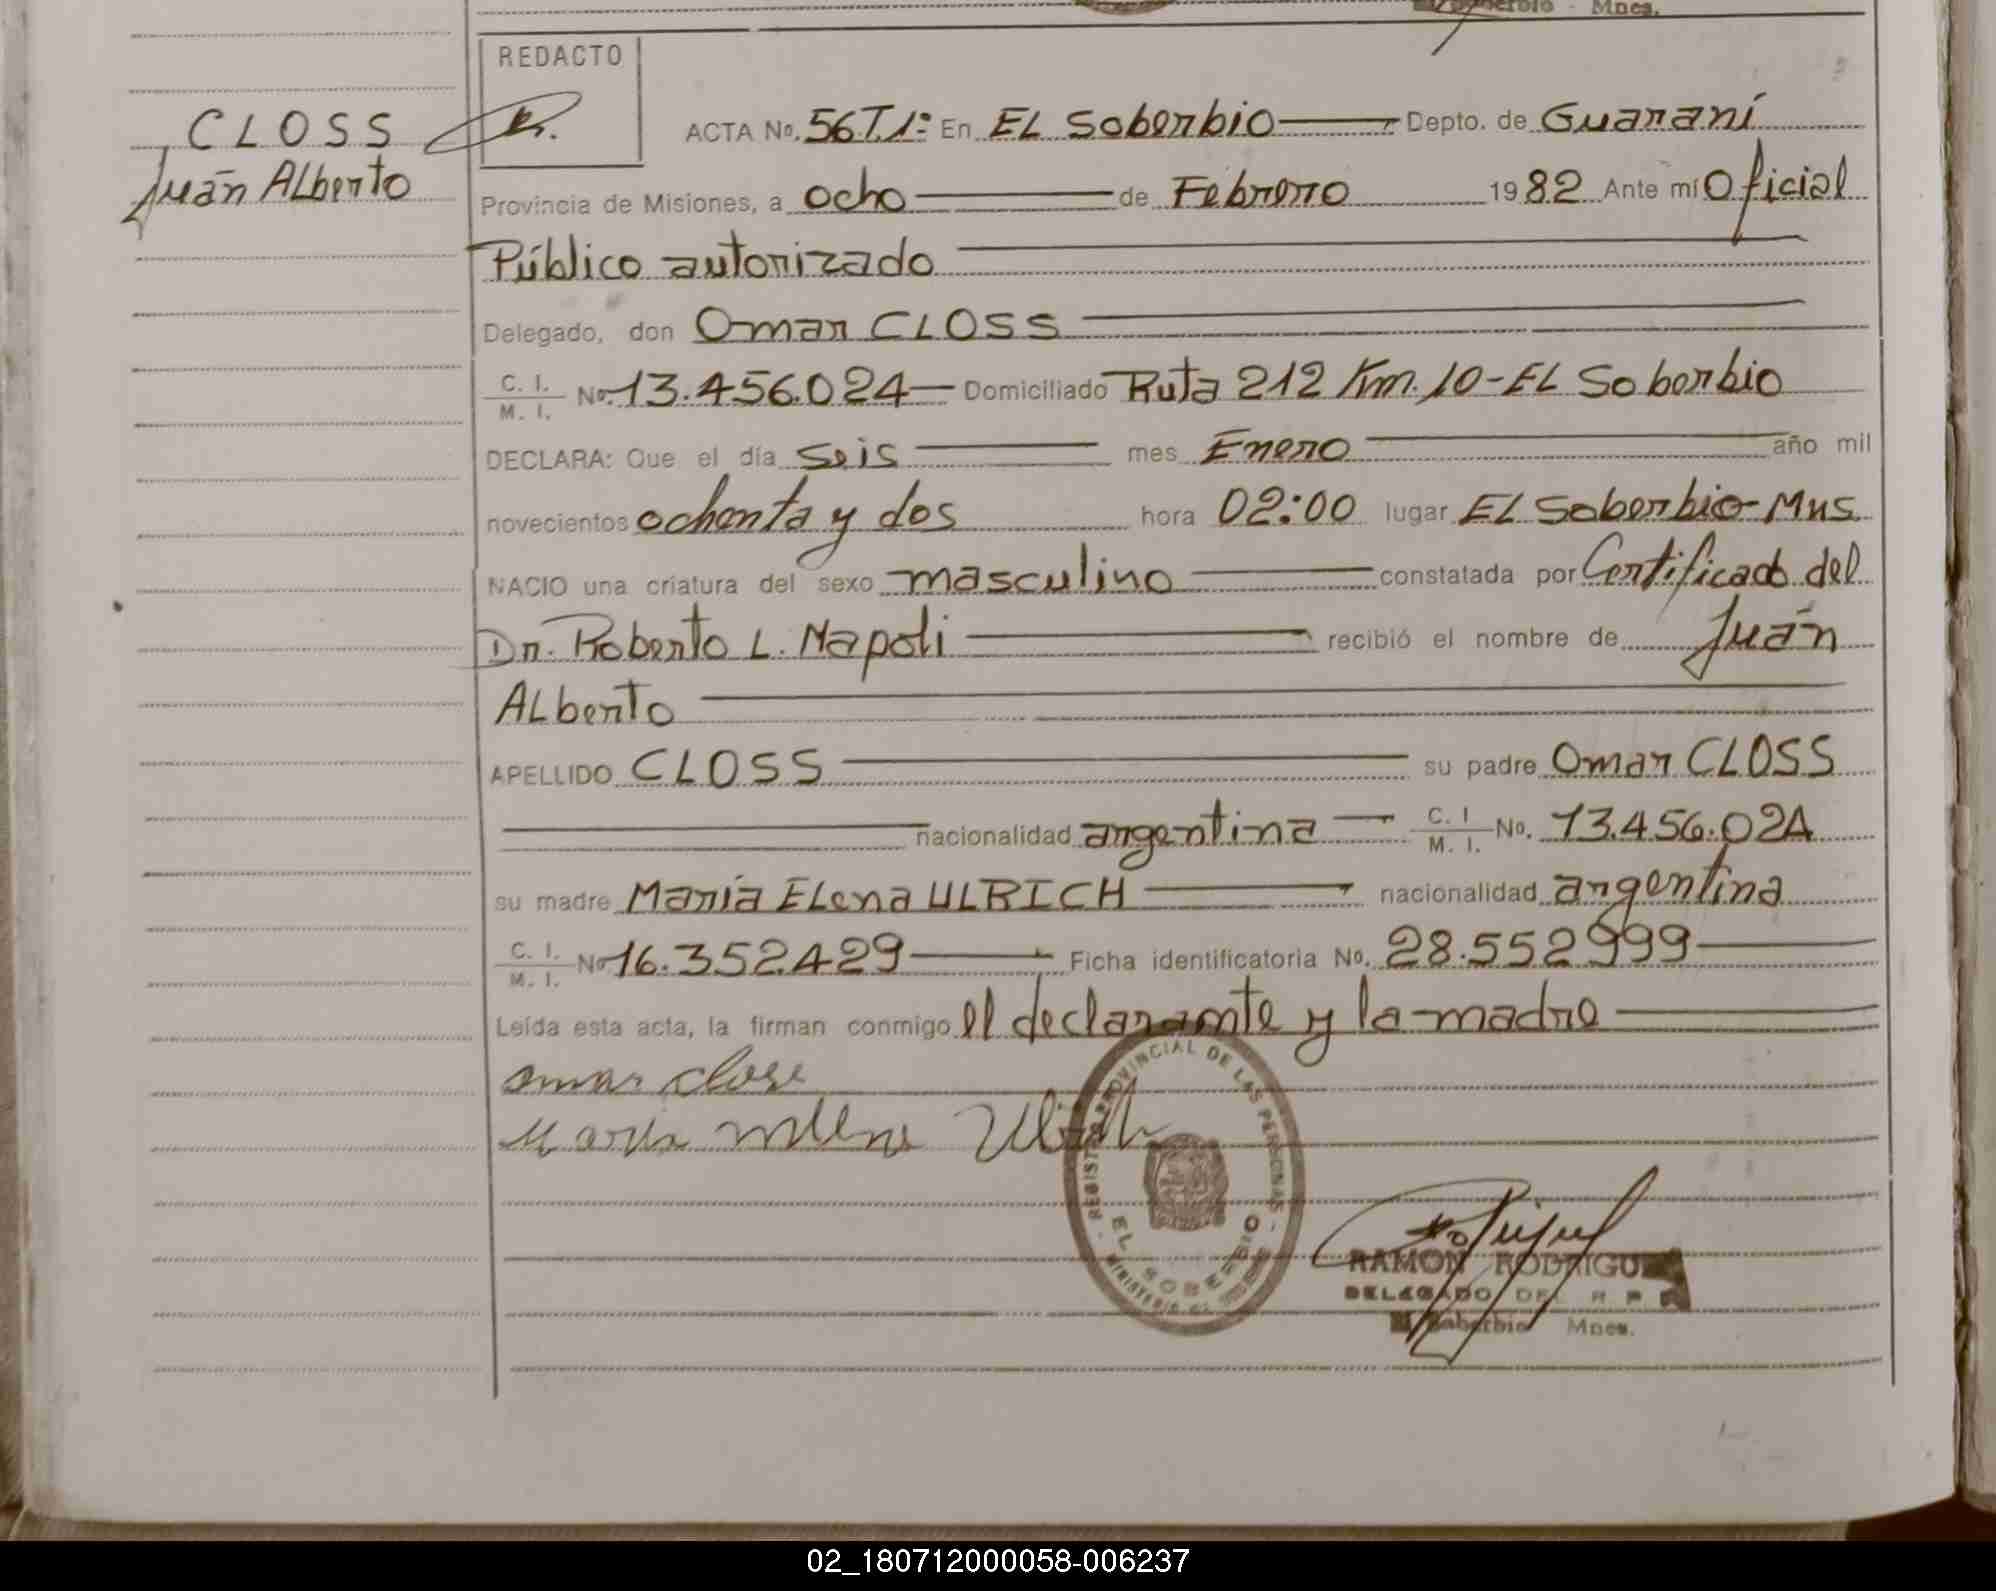 Soberbio - Mnes.
REDACTO
CLOSS
Juán ALberto
ACTA No. 56T.1º En EL Soberbio Depto. de Guaraní
Provincia de Misiones, a ocho de Febrero 1982 Ante mí Oficial
Público autorizado
Delegado, don Omar CLOSS
C. I. / M. I. No. 13.456.024 Domiciliado Ruta 212 Km. 10-EL Soberbio
DECLARA: Que el día seis mes Enero año mil
novecientos ochenta y dos hora 02:00 lugar EL Soberbio-Mns
NACIO una criatura del sexo masculino constatada por Certificado del
Dr. Roberto L. Napoli recibió el nombre de Juán
ALberto
APELLIDO CLOSS su padre Omar CLOSS
nacionalidad argentina C. I / M. I. No. 13.456.024
su madre María ELena ULRICH nacionalidad argentina
C. I. / M. I. No 16.352.429 Ficha identificatoria No. 28.552999
Leída esta acta, la firman conmigo el declarante y la madre
omar closs
REGISTRO PROVINCIAL DE LAS PERSONAS
EL SOBERBIO
RAMON RODRIGU
DELEGADO DEL R P
El Soberbio Mnes.
02_180712000058-006237